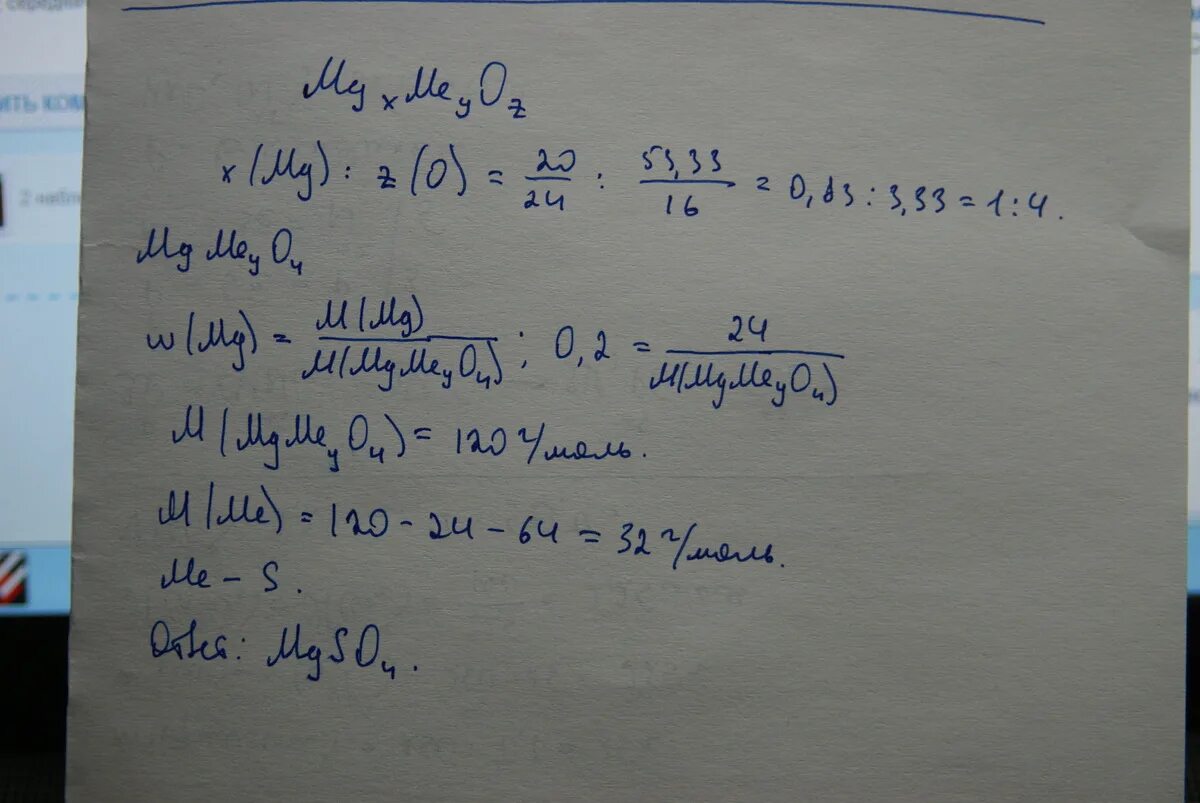 ИТЬ КОМ
Mg x Me y O z
x(Mg) : z(O) = 20/24 : 53,33/16 = 0,83 : 3,33 = 1:4.
Mg Me y O 4
w(Mg) = M(Mg)/M(MgMe y O 4) ; 0,2 = 24/M(MgMe y O 4)
M(MgMe y O 4) = 120 г/моль.
M(Me) = 120 - 24 - 64 = 32 г/моль.
Me - S.
Ответ: MgSO 4.